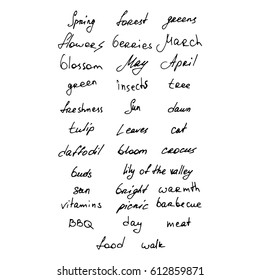 Spring forest greens
flowers berries March
blossom May April
green insects tree
freshness Sun dawn
tulip Leaves cat
daffodil bloom crocus
buds lily of the valley
sun bright warmth
vitamins picnic barbecue
BBQ day meat
food walk
shutterstock.com · 612859871